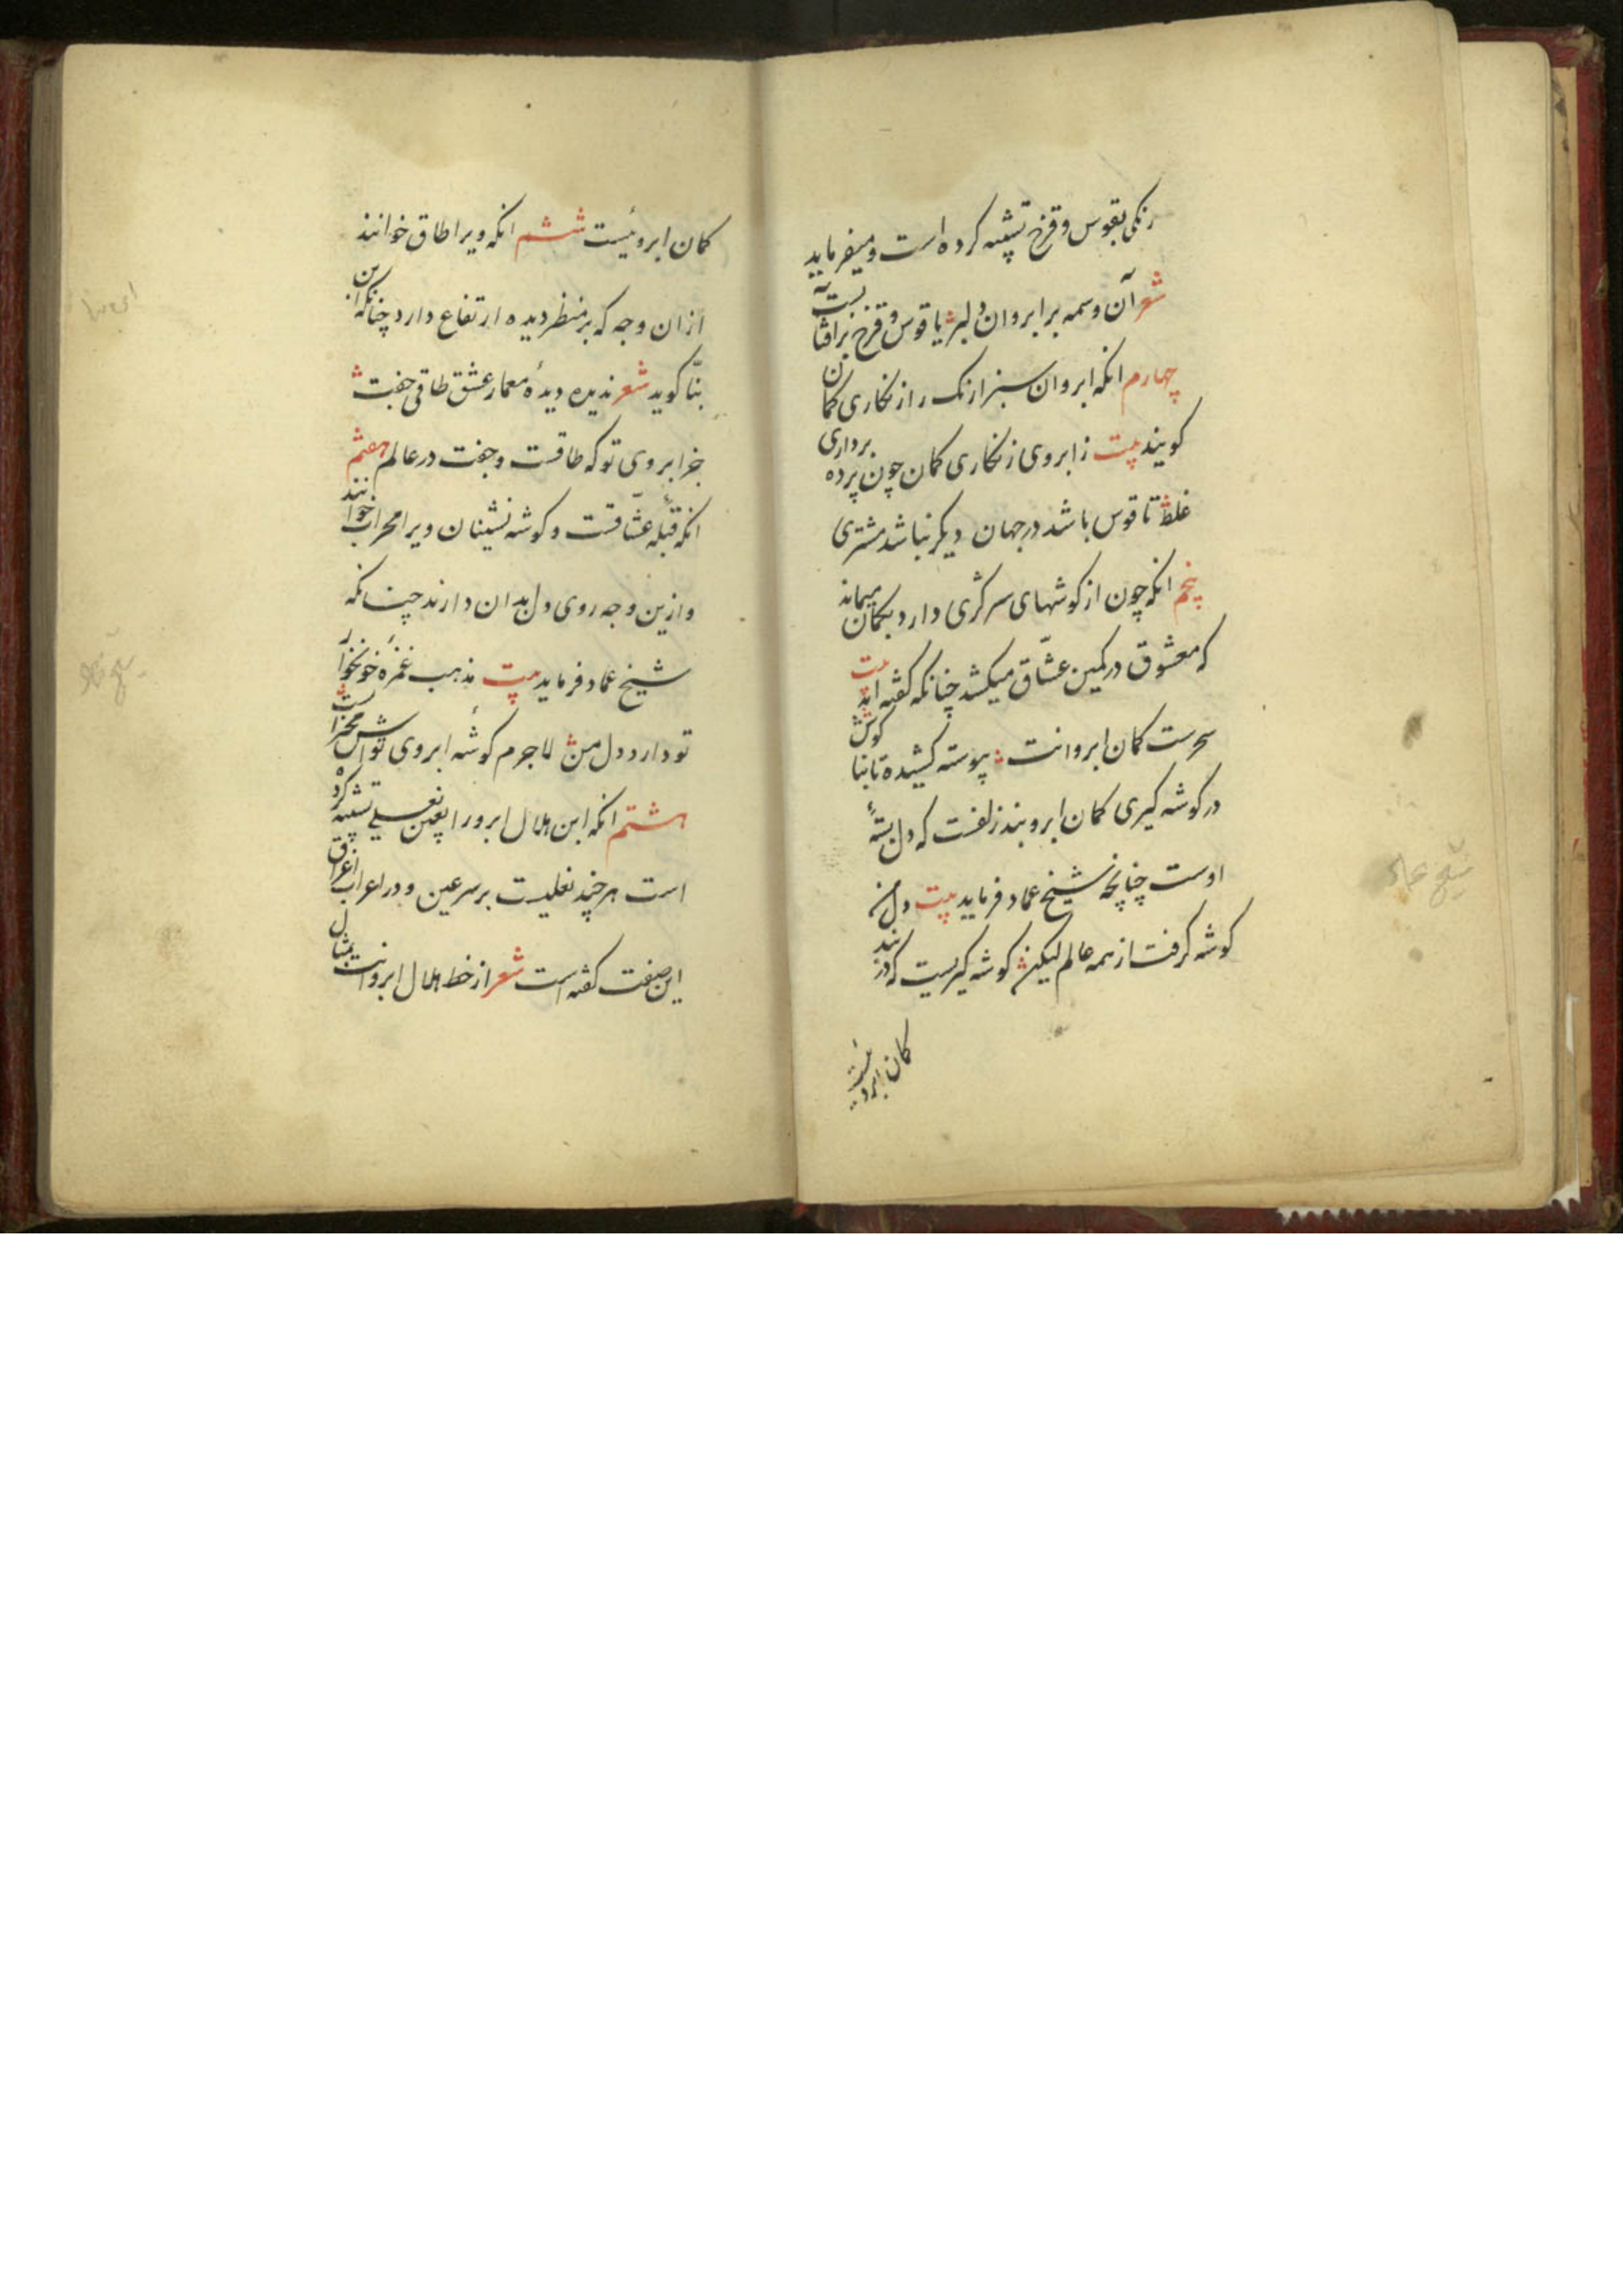 رنکی بقوس و قزح تشبیه کرده است و میفرماید
شعر آن وسمه بر ابروان دلبر یا قوس و قزح بر آفتابست
چهارم انکه ابروان سبز ارنک را زنکاری کمان
کویند بیت ز ابروی زنکاری کمان چون پرده برداری
غلط تا قوس باشد در جهان دیکر نباشد مشتری
پنجم انکه چون از کوشهای سر کژی دارد بکمان میماند
که معشوق در کمین عشّاق میکشد چنانکه کفته اند بیت
سحرست کمان ابروانت پیوسته کشیده تا بناکوش
در کوشه کیری کمان ابرو بند زلفست که دل بستۀ
اوست چنانچه شیخ عماد فرماید بیت دل من
کوشه کرفت از همه عالم لیکن کوشه کیریست که در بند
کمان ابروئیست
کمان ابروئیست ششم انکه ویرا طاق خوانند
ازان وجه که بر منظر دیده ارتفاع دارد چنانکه ابن
بنّا کوید شعر ندیده دیدۀ معمار عشق طاقی جفت
جز ابروی تو که طاقست و جفت در عالم هفتم
انکه قبلۀ عشّاقست و کوشه نشینان ویرا محراب خوانند
و ازین وجه روی دل بدان دارند چنانکه
شیخ عماد فرماید بیت مذهب غمزۀ خونخوار
تو دارد دل من لاجرم کوشۀ ابروی تواش محرابست
هشتم انکه ابن هلال ابرو را بعین نعلی تشبیه کرده
است هر چند نعلیست بر سر عین و در اعراب اغراق
این صفت کفته است شعر از خط هلال ابروانت مثال
شیخ عماد